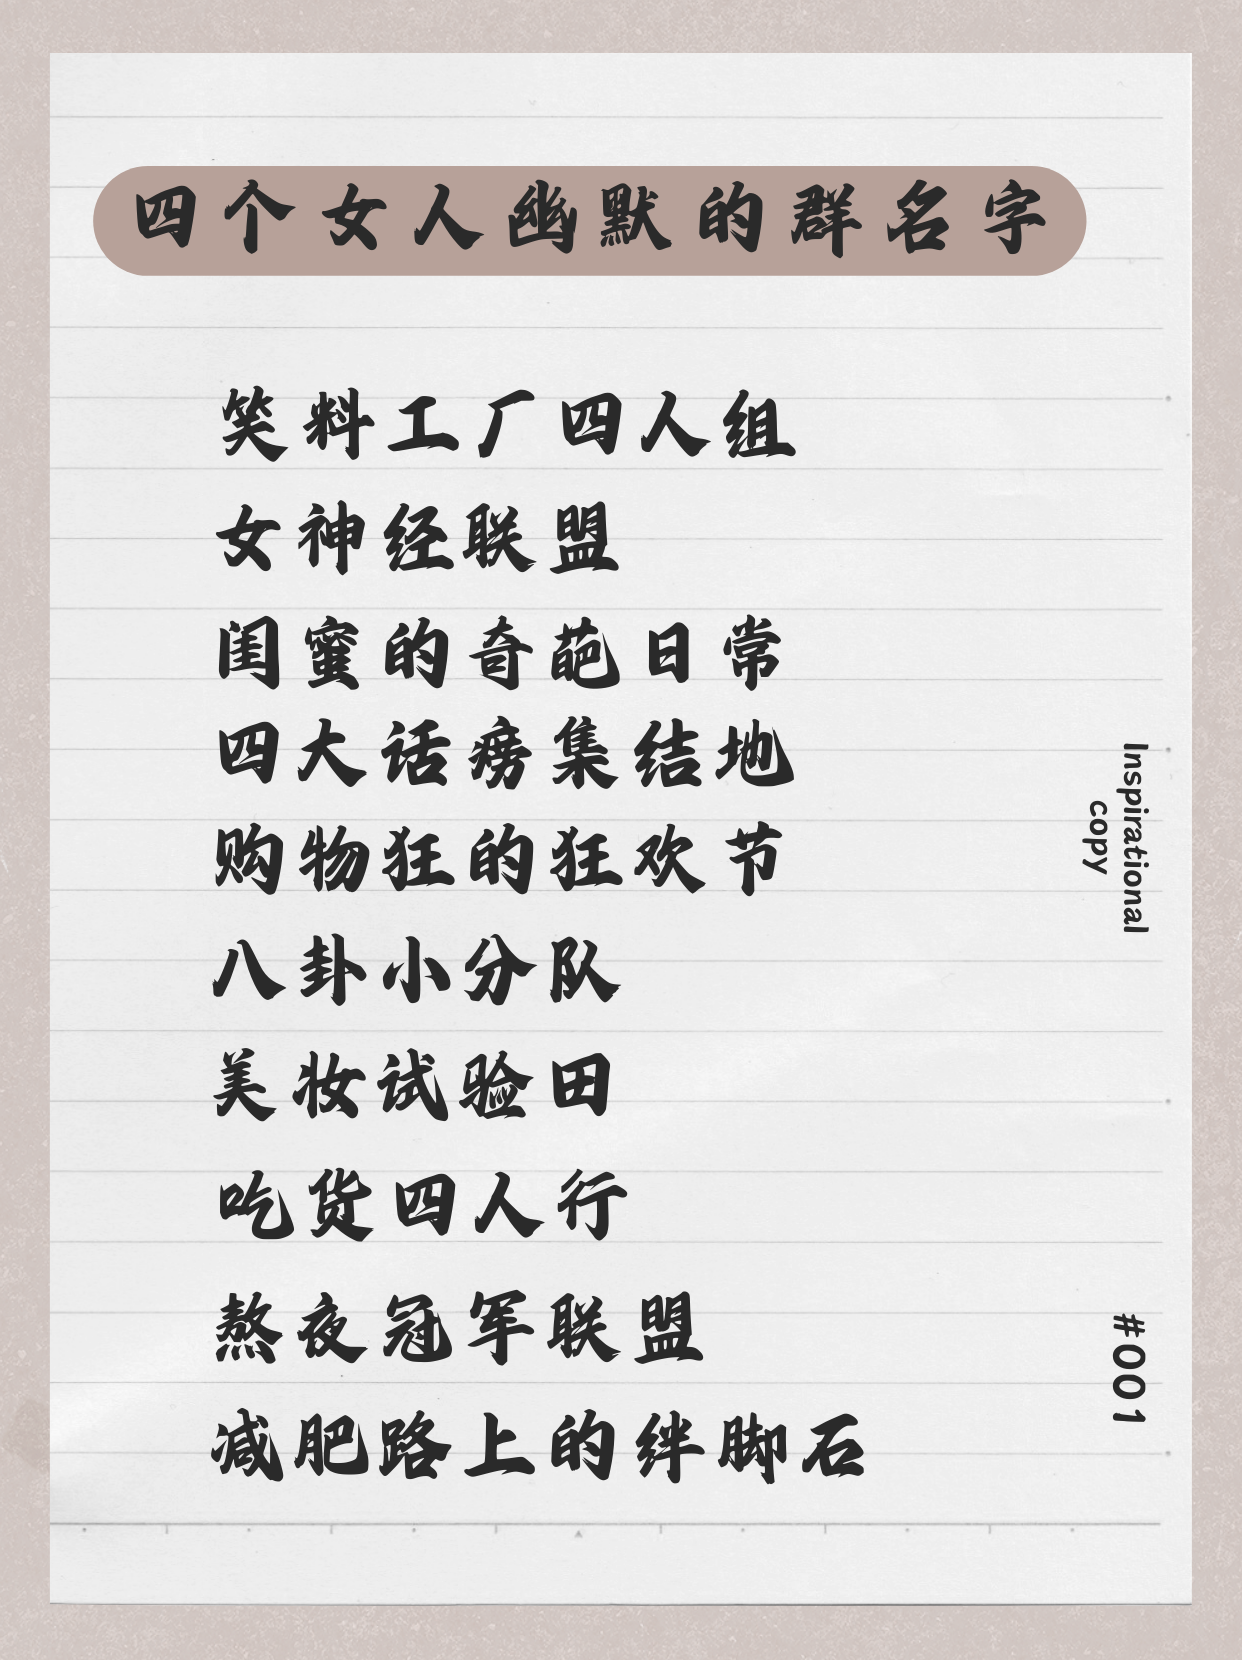 四个女人幽默的群名字
笑料工厂四人组
女神经联盟
闺蜜的奇葩日常
四大话痨集结地
购物狂的狂欢节
八卦小分队
美妆试验田
吃货四人行
熬夜冠军联盟
减肥路上的绊脚石
Inspirational
copy
#001